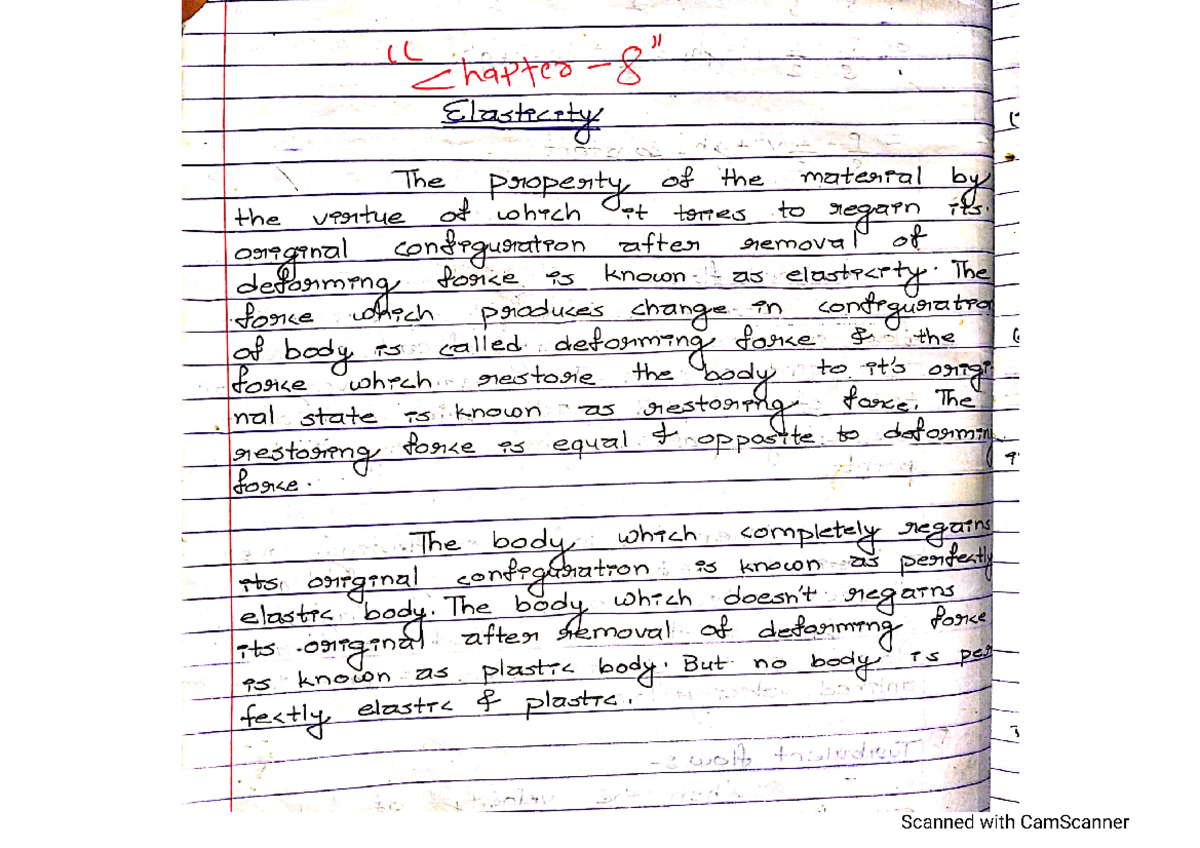 "Chapter - 8"
Elasticity
The property of the material by
the virtue of which it tries to regain its
original configuration after removal of
deforming force is known as elasticity. The
force which produces change in configuration
of body is called deforming force & the
force which restore the body to it's origi-
nal state is known as restoring force. The
restoring force is equal & opposite to deforming
force.
The body which completely regains
its original configuration is known as perfectly
elastic body. The body which doesn't regains
its original after removal of deforming force
is known as plastic body. But no body is per
fectly elastic & plastic.
Turbulent flow :-
Scanned with CamScanner